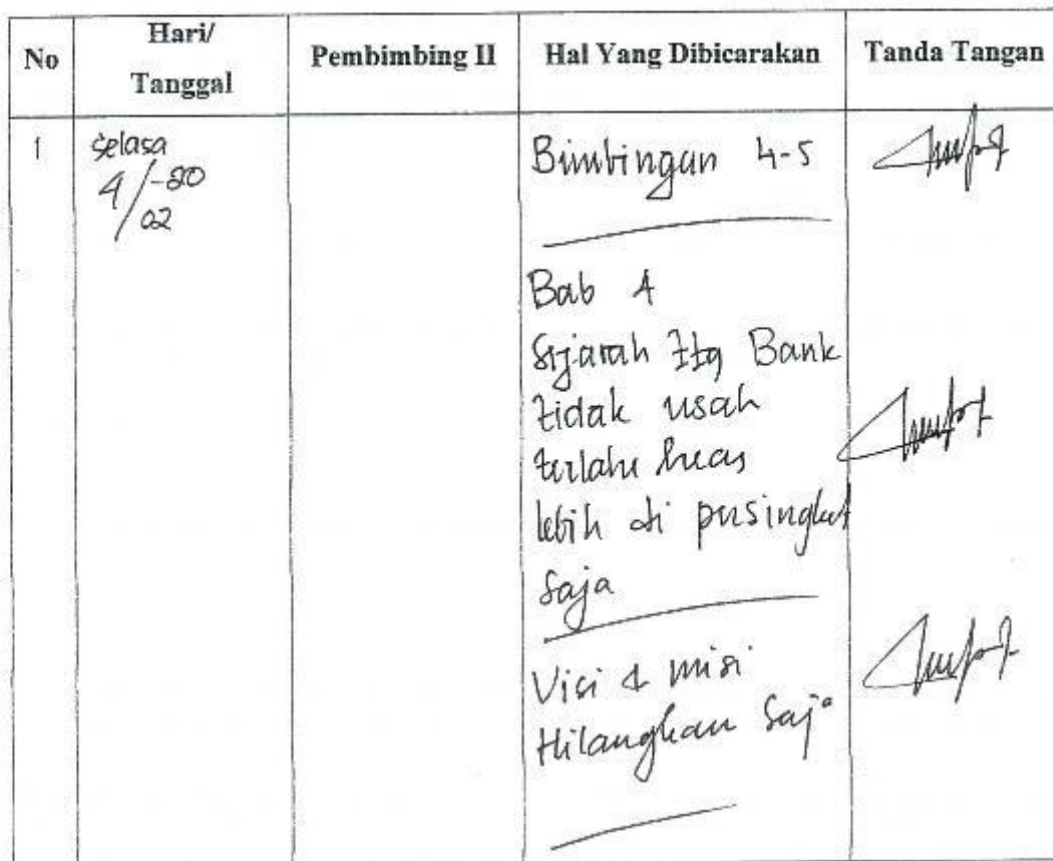 No
Hari/
Tanggal
Pembimbing II
Hal Yang Dibicarakan
Tanda Tangan
1
Selasa
4/-20
02
Bimbingan 4-5
Bab 4
Sejarah ttg Bank
tidak usah
terlalu luas
lebih di persingkat
saja
Visi & misi
Hilangkan Saja